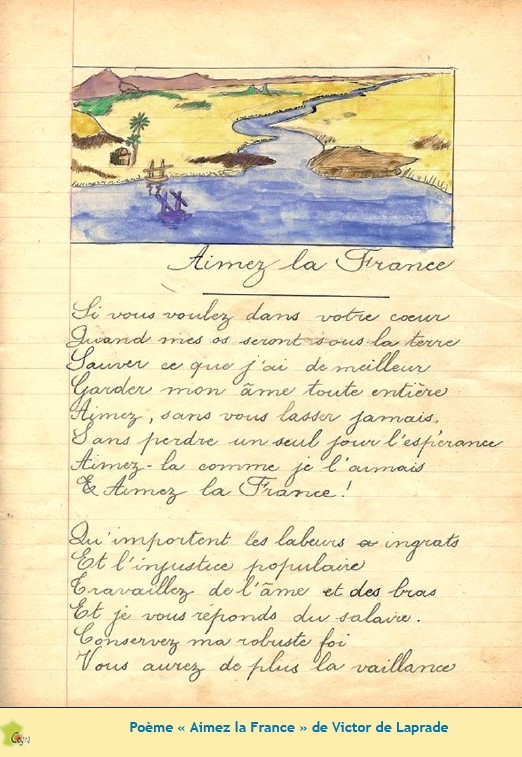 Aimez la France
Si vous voulez dans votre cœur
Quand mes os seront sous la terre
Sauver ce que j'ai de meilleur
Garder mon âme toute entière
Aimez, sans vous lasser jamais,
Sans perdre un seul jour l'espérance
Aimez-la comme je l'aimais
Et Aimez la France!
Qu'importent les labeurs a ingrats
Et l'injustice populaire
Travaillez de l'âme et des bras
Et je vous réponds du salaire.
Conservez ma robuste foi
Vous aurez de plus la vaillance
Poème « Aimez la France » de Victor de Laprade